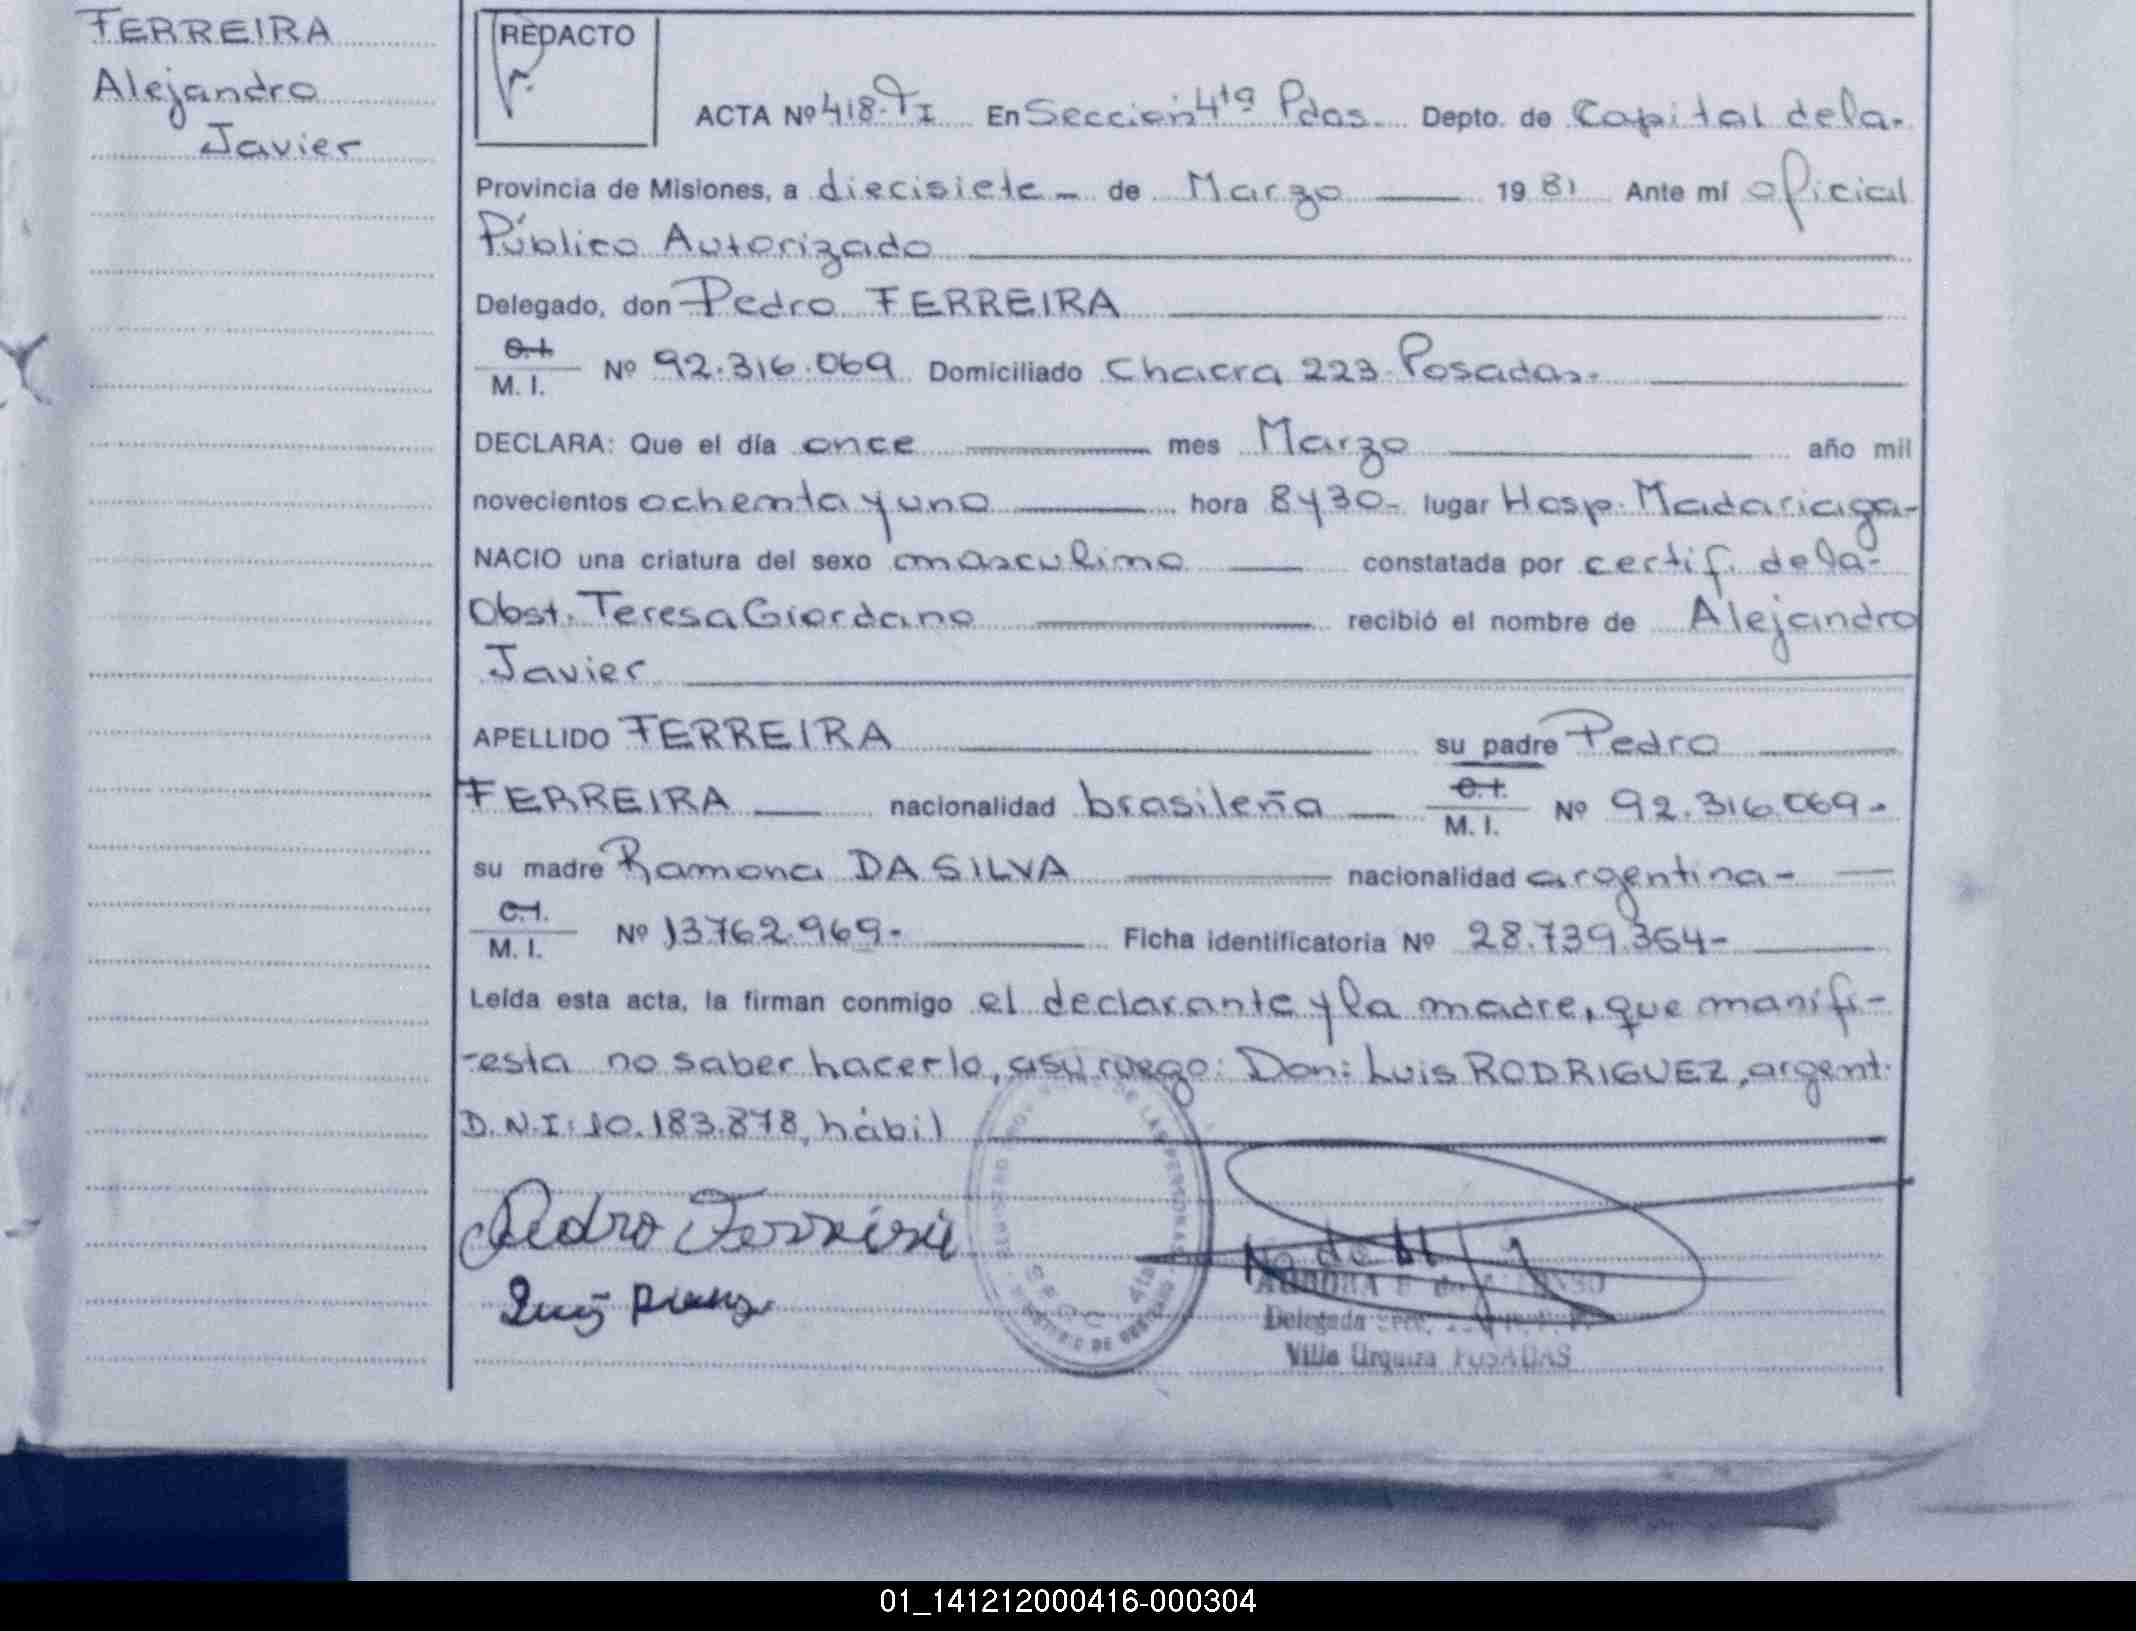 FERREIRA
Alejandro
Javier
REDACTO
ACTA Nº 418-TI En Sección 4ta Pdas. Depto. de Capital dela-
Provincia de Misiones, a diecisiete - de Marzo 1981 Ante mí oficial
Público Autorizado
Delegado, don Pedro FERREIRA
C.I. M. I. Nº 92.316.069 Domiciliado Chacra 223-Posadas.
DECLARA: Que el día once mes Marzo año mil
novecientos ochenta y uno hora 8y30- lugar Hosp. Madariaga-
NACIO una criatura del sexo masculino constatada por certif. dela-
Obst. Teresa Giordano recibió el nombre de Alejandro
Javier
APELLIDO FERREIRA su padre Pedro
FERREIRA nacionalidad brasileña C.I. M. I. Nº 92.316.069-
su madre Ramona DA SILVA nacionalidad argentina-
C.I. M. I. Nº 13762.969- Ficha identificatoria Nº 28.739.364-
Leída esta acta, la firman conmigo el declarante y la madre, que manifi-
-esta no saber hacerlo, a su ruego: Don: Luis RODRIGUEZ, argent.
D.N.I: 10.183.878, hábil
Pedro Ferreira
Luis
DE LAS PERSONAS
Secc 4ta
Delegada
Villa Urquiza POSADAS
01_141212000416-000304